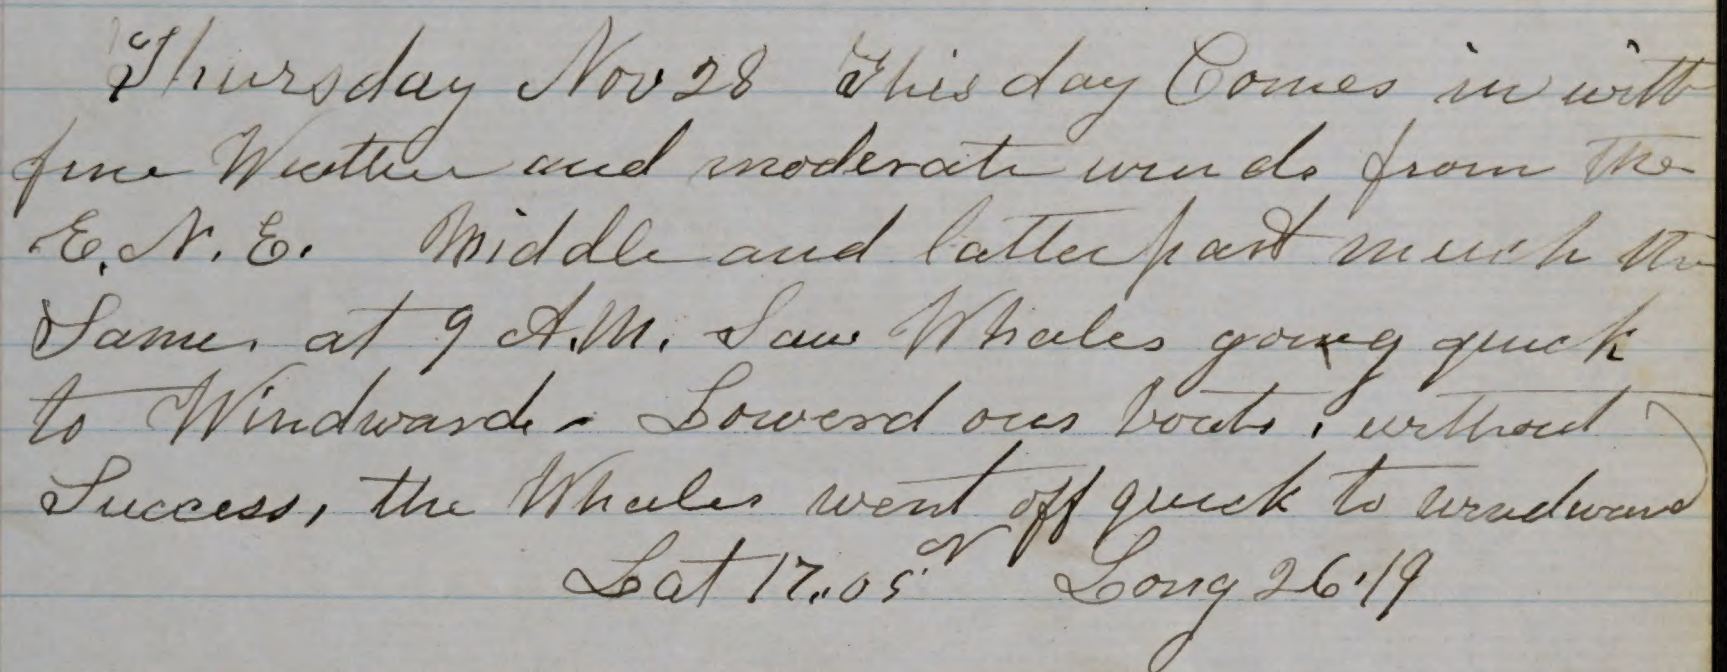 Thursday Nov 28 This day Comes in with
fine Weather and moderate winds from the
E. N. E. Middle and latter part much the
Same. at 9 A.M. Saw Whales going quick
to Windward - Lowerd our boats. without
Success, the Whales went off quick to windward
Lat 17..05 N Long 26.19